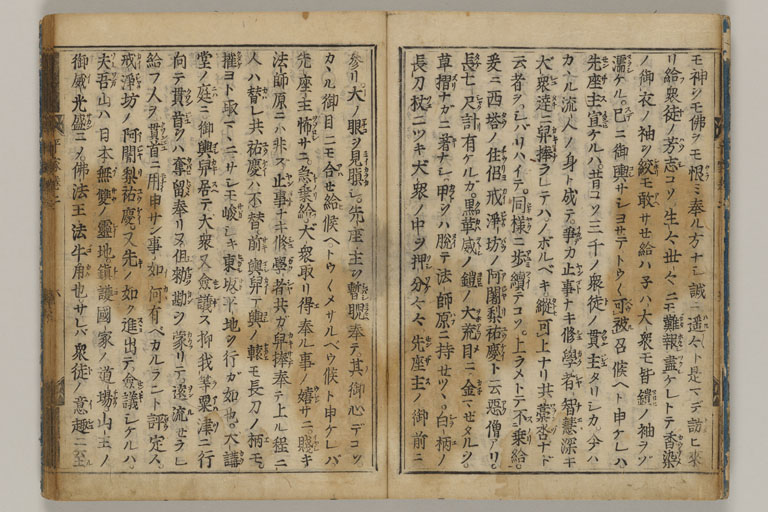 モ神ニモ佛ヲモ恨ミ奉ル方ナシ誠ニ遥々ト是マデ訪ヒ來
リ給衆徒ノ芳志コソ生々世々ニモ難報盡ケレトテ香染
ノ御衣ノ袖ヲ絞モ敢サセ給ハ子ハ大衆モ皆鎧ノ袖ヲゾ
濡ケル。已ニ御輿サシヨサテトウ〱可被召候ヘト申ケレハ
先座主宣ケルハ昔コソ三千ノ衆徒ノ貫主タリシカ今ハ
カヽル流人ノ身ト成テ爭カ止事ナキ修學者智慧深キ
大衆達ニ舁捧ラレテハノボルベキ縦可上ナリ共藁沓ナド
云者ヲシバリハイテ。同樣ニ歩續テコソ。上ラメトテ不乘給。
爰ニ西塔ノ住侶戒淨坊ノ阿闍梨祐慶ト云惡僧アリ。
長七尺計有ケルカ。黒革威ノ鎧ノ大荒目ニ金マゼタルヲ。
草摺ナガニ著ナシ甲ヲハ脱テ法師原ニ持セツヽ。白柄ノ
長刀杖ニツキ大衆ノ中ヲ押分々々先座主ノ御前ニ
參リ大ノ眼ヲ見瞋シ。先座主ヲ暫睨奉テ其御心デコソ
カヽル御目ニモ合セ給候ヘトウ〱メサルベウ候ト申ケレバ
先座主怖サニ。急乘給。大衆取リ得奉ル事ノ嬉サニ賤キ
法師原ニハ非ス止事ナキ修學者共カ舁捧奉テ上ル程ニ
人ハ替レ共祐慶ハ不替前輿舁テ輿ノ轅モ長刀ノ柄モ。
摧ヨト取マヽニサシモ峻シキ東坂平地ヲ行ガ如也。大講
堂ノ庭ニ御輿舁居テ大衆又僉議ス抑我等粟津ニ行
向テ貫首ヲハ奪留奉リヌ但勅勘ヲ蒙リテ遠流セラレ
給フ人ヲ貫首ニ用申サン事如何有ベカルラント評定ス。
戒淨坊ノ阿闍梨祐慶。又先ノ如ク進出テ僉議シケルハ。
夫吾山ハ日本無雙ノ靈地鎮護國家ノ道場山王ノ
御威光盛ニメ佛法王法牛角也サレバ衆徒ノ意趣ニ至